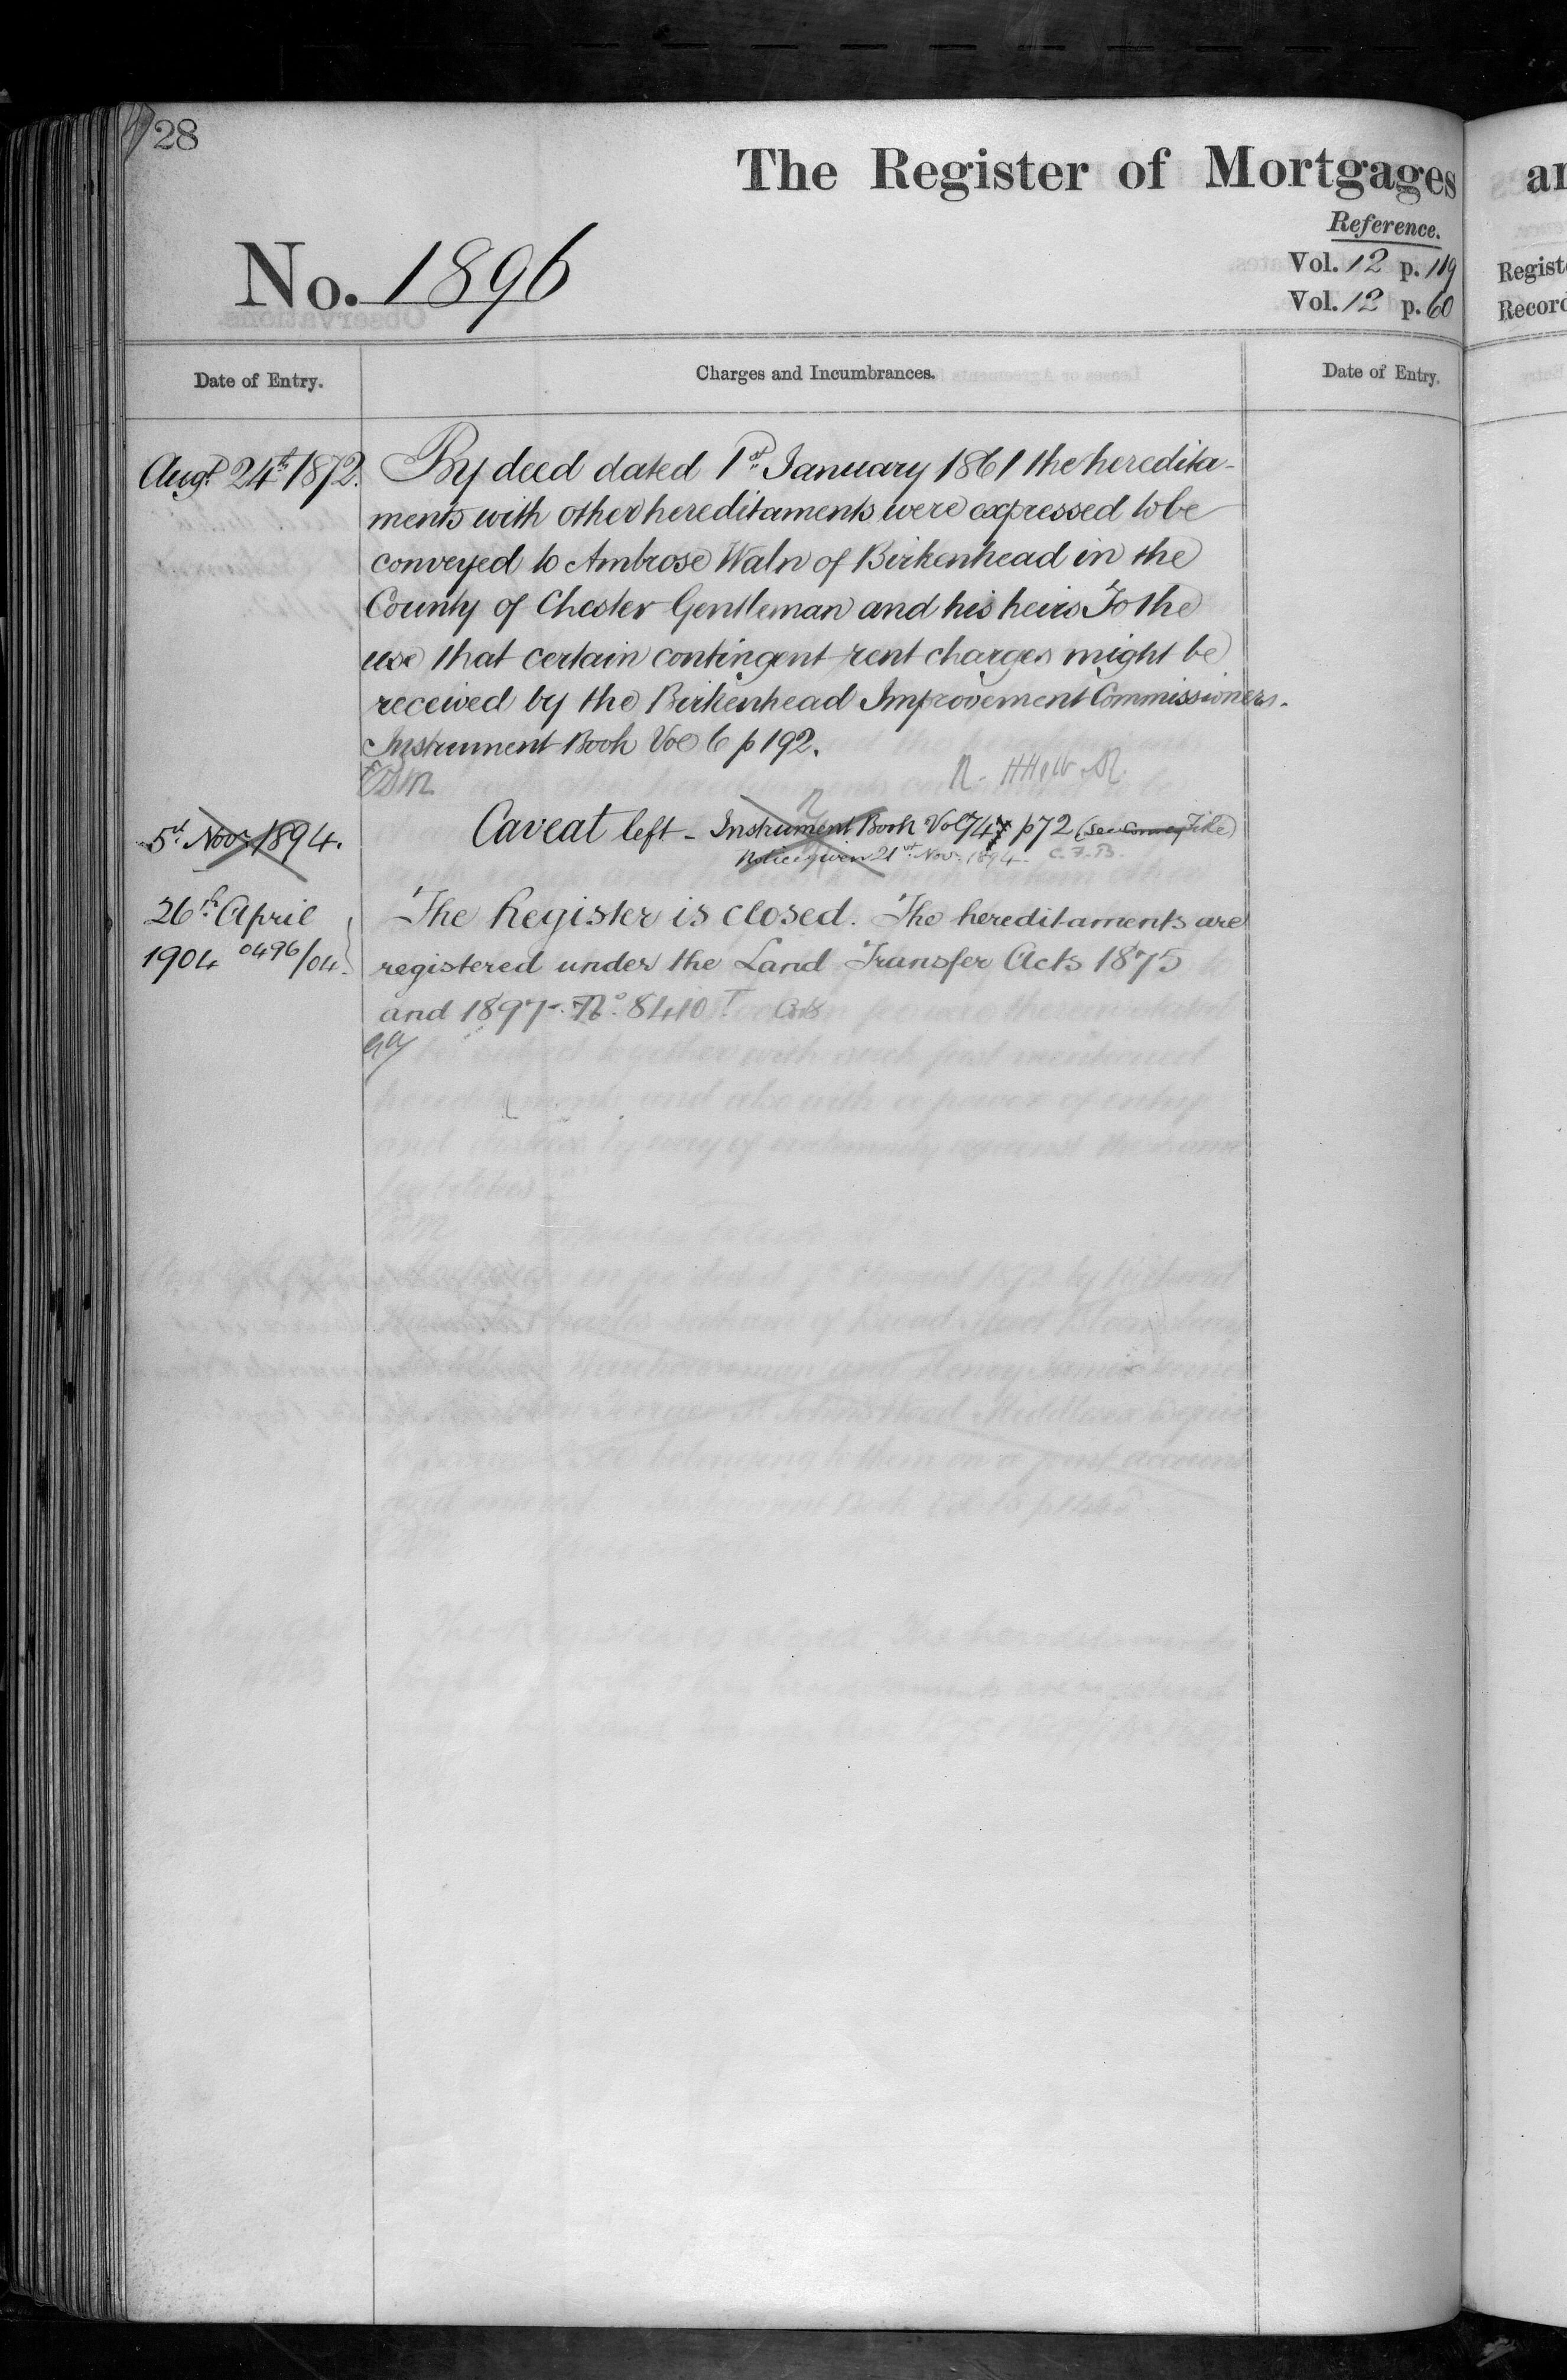 28
The Register of Mortgages
Reference.
No. 1896
Vol. 12 p. 119
Vol. 12 p. 60
Regist
Record
Date of Entry.
Charges and Incumbrances.
Date of Entry.
Augt 24th 1872.
By deed dated 1st January 1861 the heredita-
ments with other hereditaments were expressed to be
conveyed to Ambrose Waln of Birkenhead in the
County of Chester Gentleman and his heirs To the
use that certain contingent rent charges might be
received by the Birkenhead Improvement Commissioners.
Instrument Book Vol 6 p 192.
5th Novr 1894.
Caveat left - Instrument Book Vol 747 p72 (See Convey File)
Notice given 21st Novr 1894 C.F.B.
26th April
1904 0496/04
The Register is closed. The hereditaments are
registered under the Land Transfer Acts 1875
and 1897. No. 8410